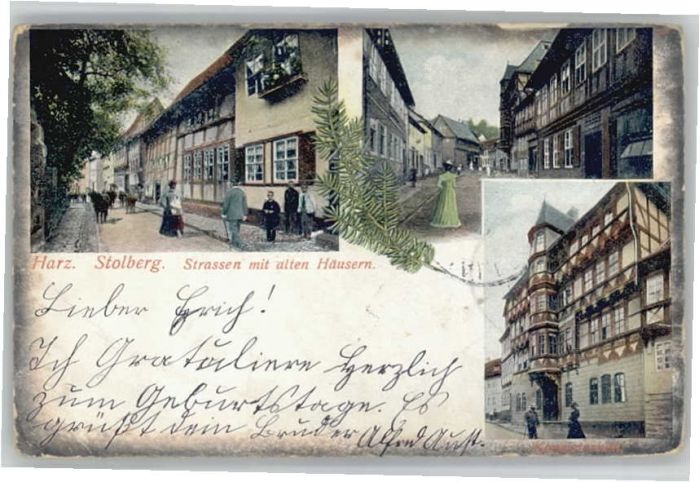 Harz. Stolberg. Strassen mit alten Häusern.
Lieber Erich!
Ich Gratuliere Herzlich
zum Geburtstage. Es
grüßt dein Bruder Alfred Aust.